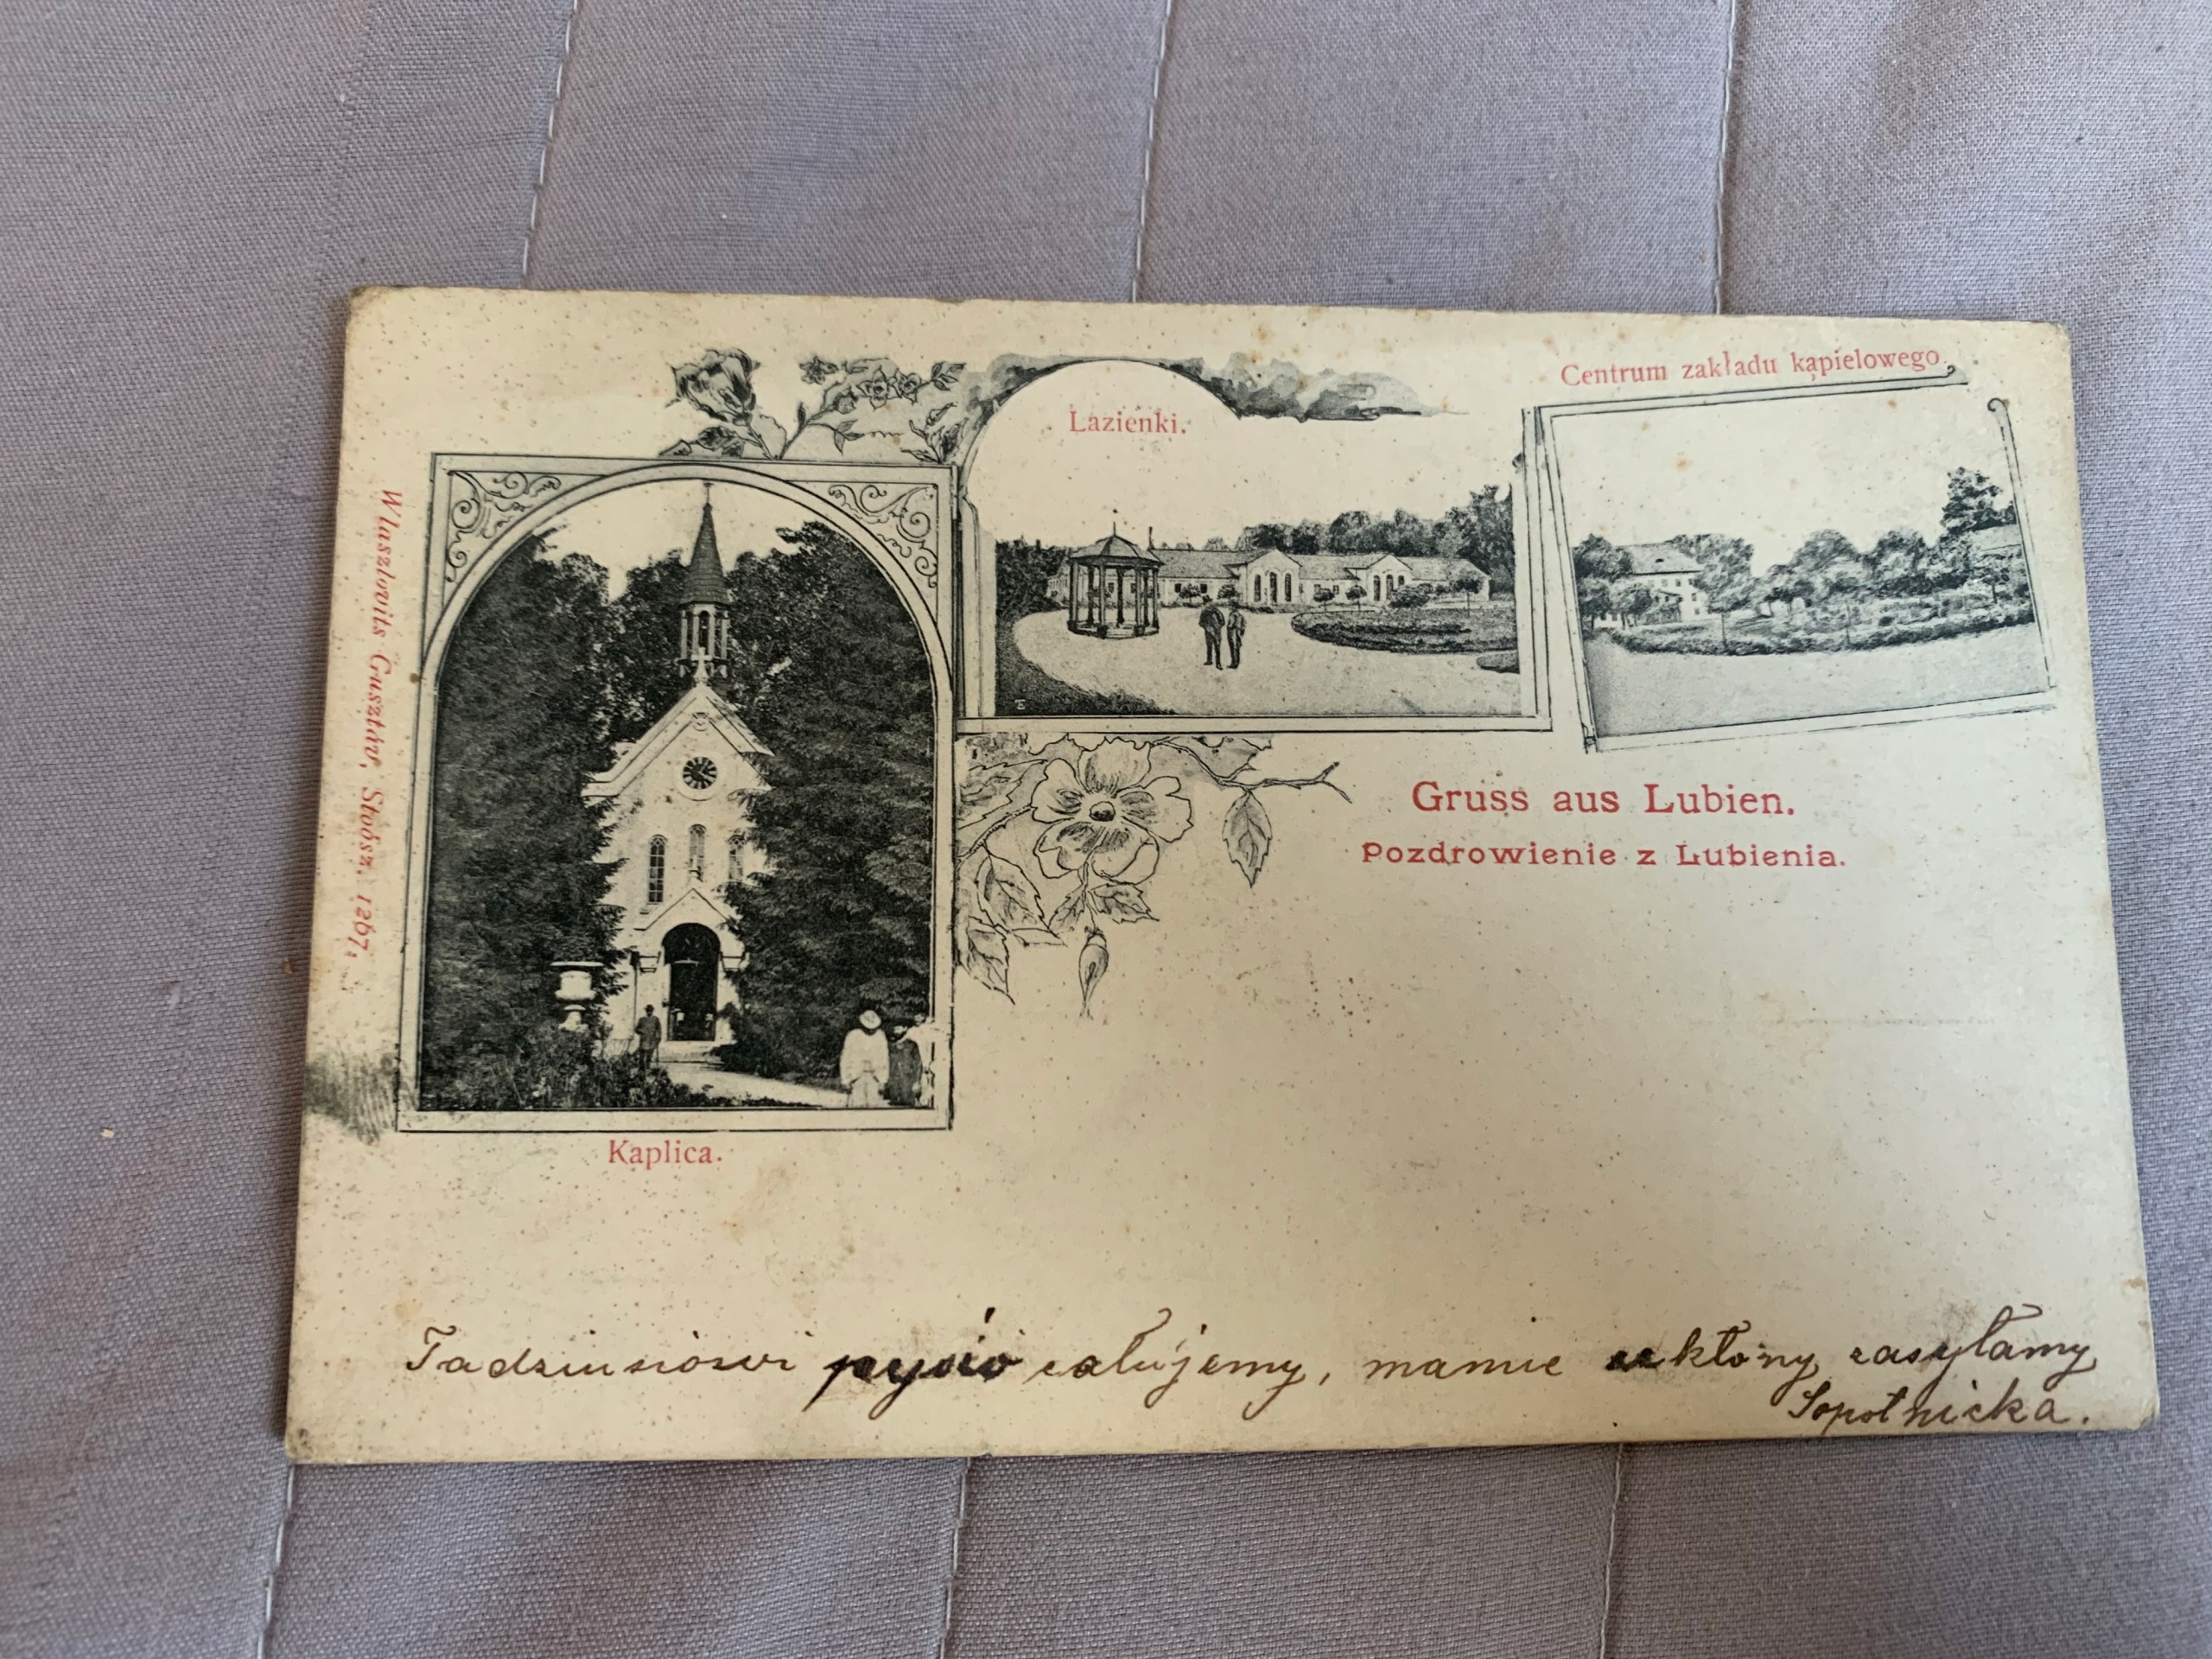 Centrum zakładu kąpielowego.
Lazienki.
Wlaszlovits Gusztáv, Stósz. 1267.
Gruss aus Lubien.
Pozdrowienie z Lubienia.
Kaplica.
Tadziusiowi pysio całujemy, mamie ukłony zasyłamy
Sopotnicka.